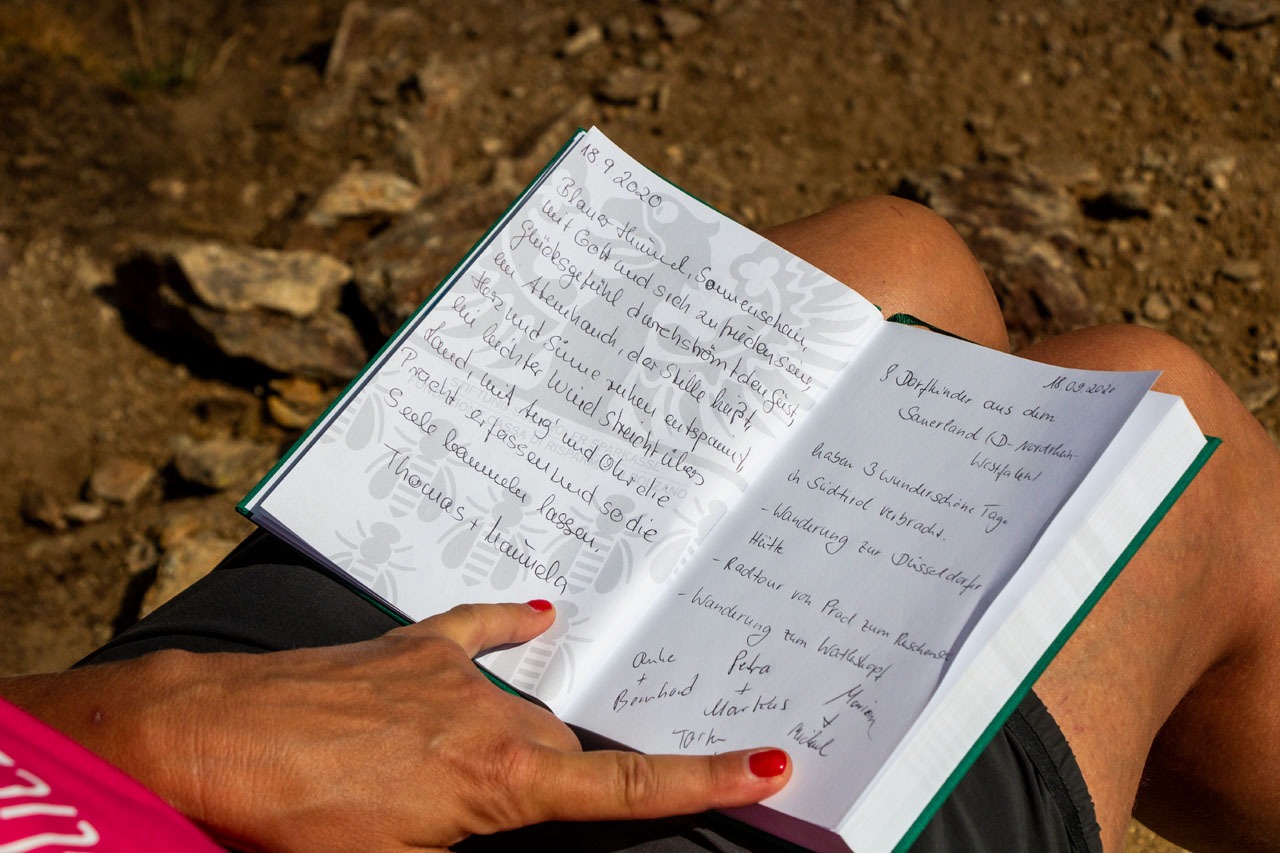 18.9 2020
Blauer Himmel, Sonnenschein,
mit Gott und sich zufrieden sein,
Glücksgefühl durchströmt den Geist,
ein Atemhauch, der Stille heißt,
Herz und Sinne ruhen entspannt,
ein leichter Wind streicht übers
Land, mit Aug und Ohr die
Pracht erfassen und so die
Seele baumeln lassen.
Thomas + Manuela
STIFTUNG SÜDTIROLER SPARKASSE
BOLZANO
18.09.2020
8 Dorfkinder aus dem
Sauerland (D-Nordrhein-
Westfalen)
haben 3 wunderschöne Tage
in Südtirol verbracht.
- Wanderung zur Düsseldorfer
Hütte
- Radtour von Prad zum
- Wanderung zum
Anke Petra Marion
+ + +
Bernhard Markus Michael